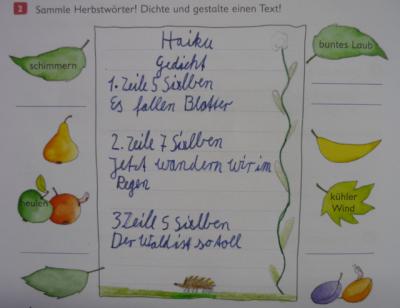 2 Sammle Herbstwörter! Dichte und gestalte einen Text!
schimmern
buntes Laub
heulen
kühler
Wind
Haiku
Gedicht
1. Zeile 5 Sielben
Es fallen Blätter
2. Zeile 7 Sielben
Jetzt wandern wir im
Regen
3 Zeile 5 Sielben
Der Wald ist so toll